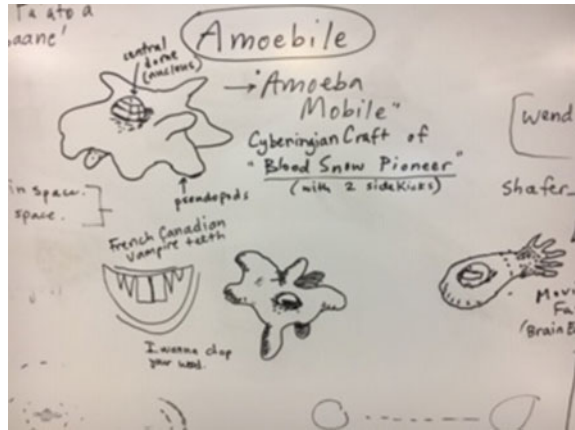 Ta ato a
Amoebile
central
dome
(nucleus)
→ "Amoeba
Mobile"
Cyberingian Craft of
"Blood Snow Pioneer"
(with 2 sidekicks)
Wend
in space.
space.
pseudopods
Shafer
French Canadian
Vampire teeth
I wanna chop
your wood.
Mov
Fa
(Brain E